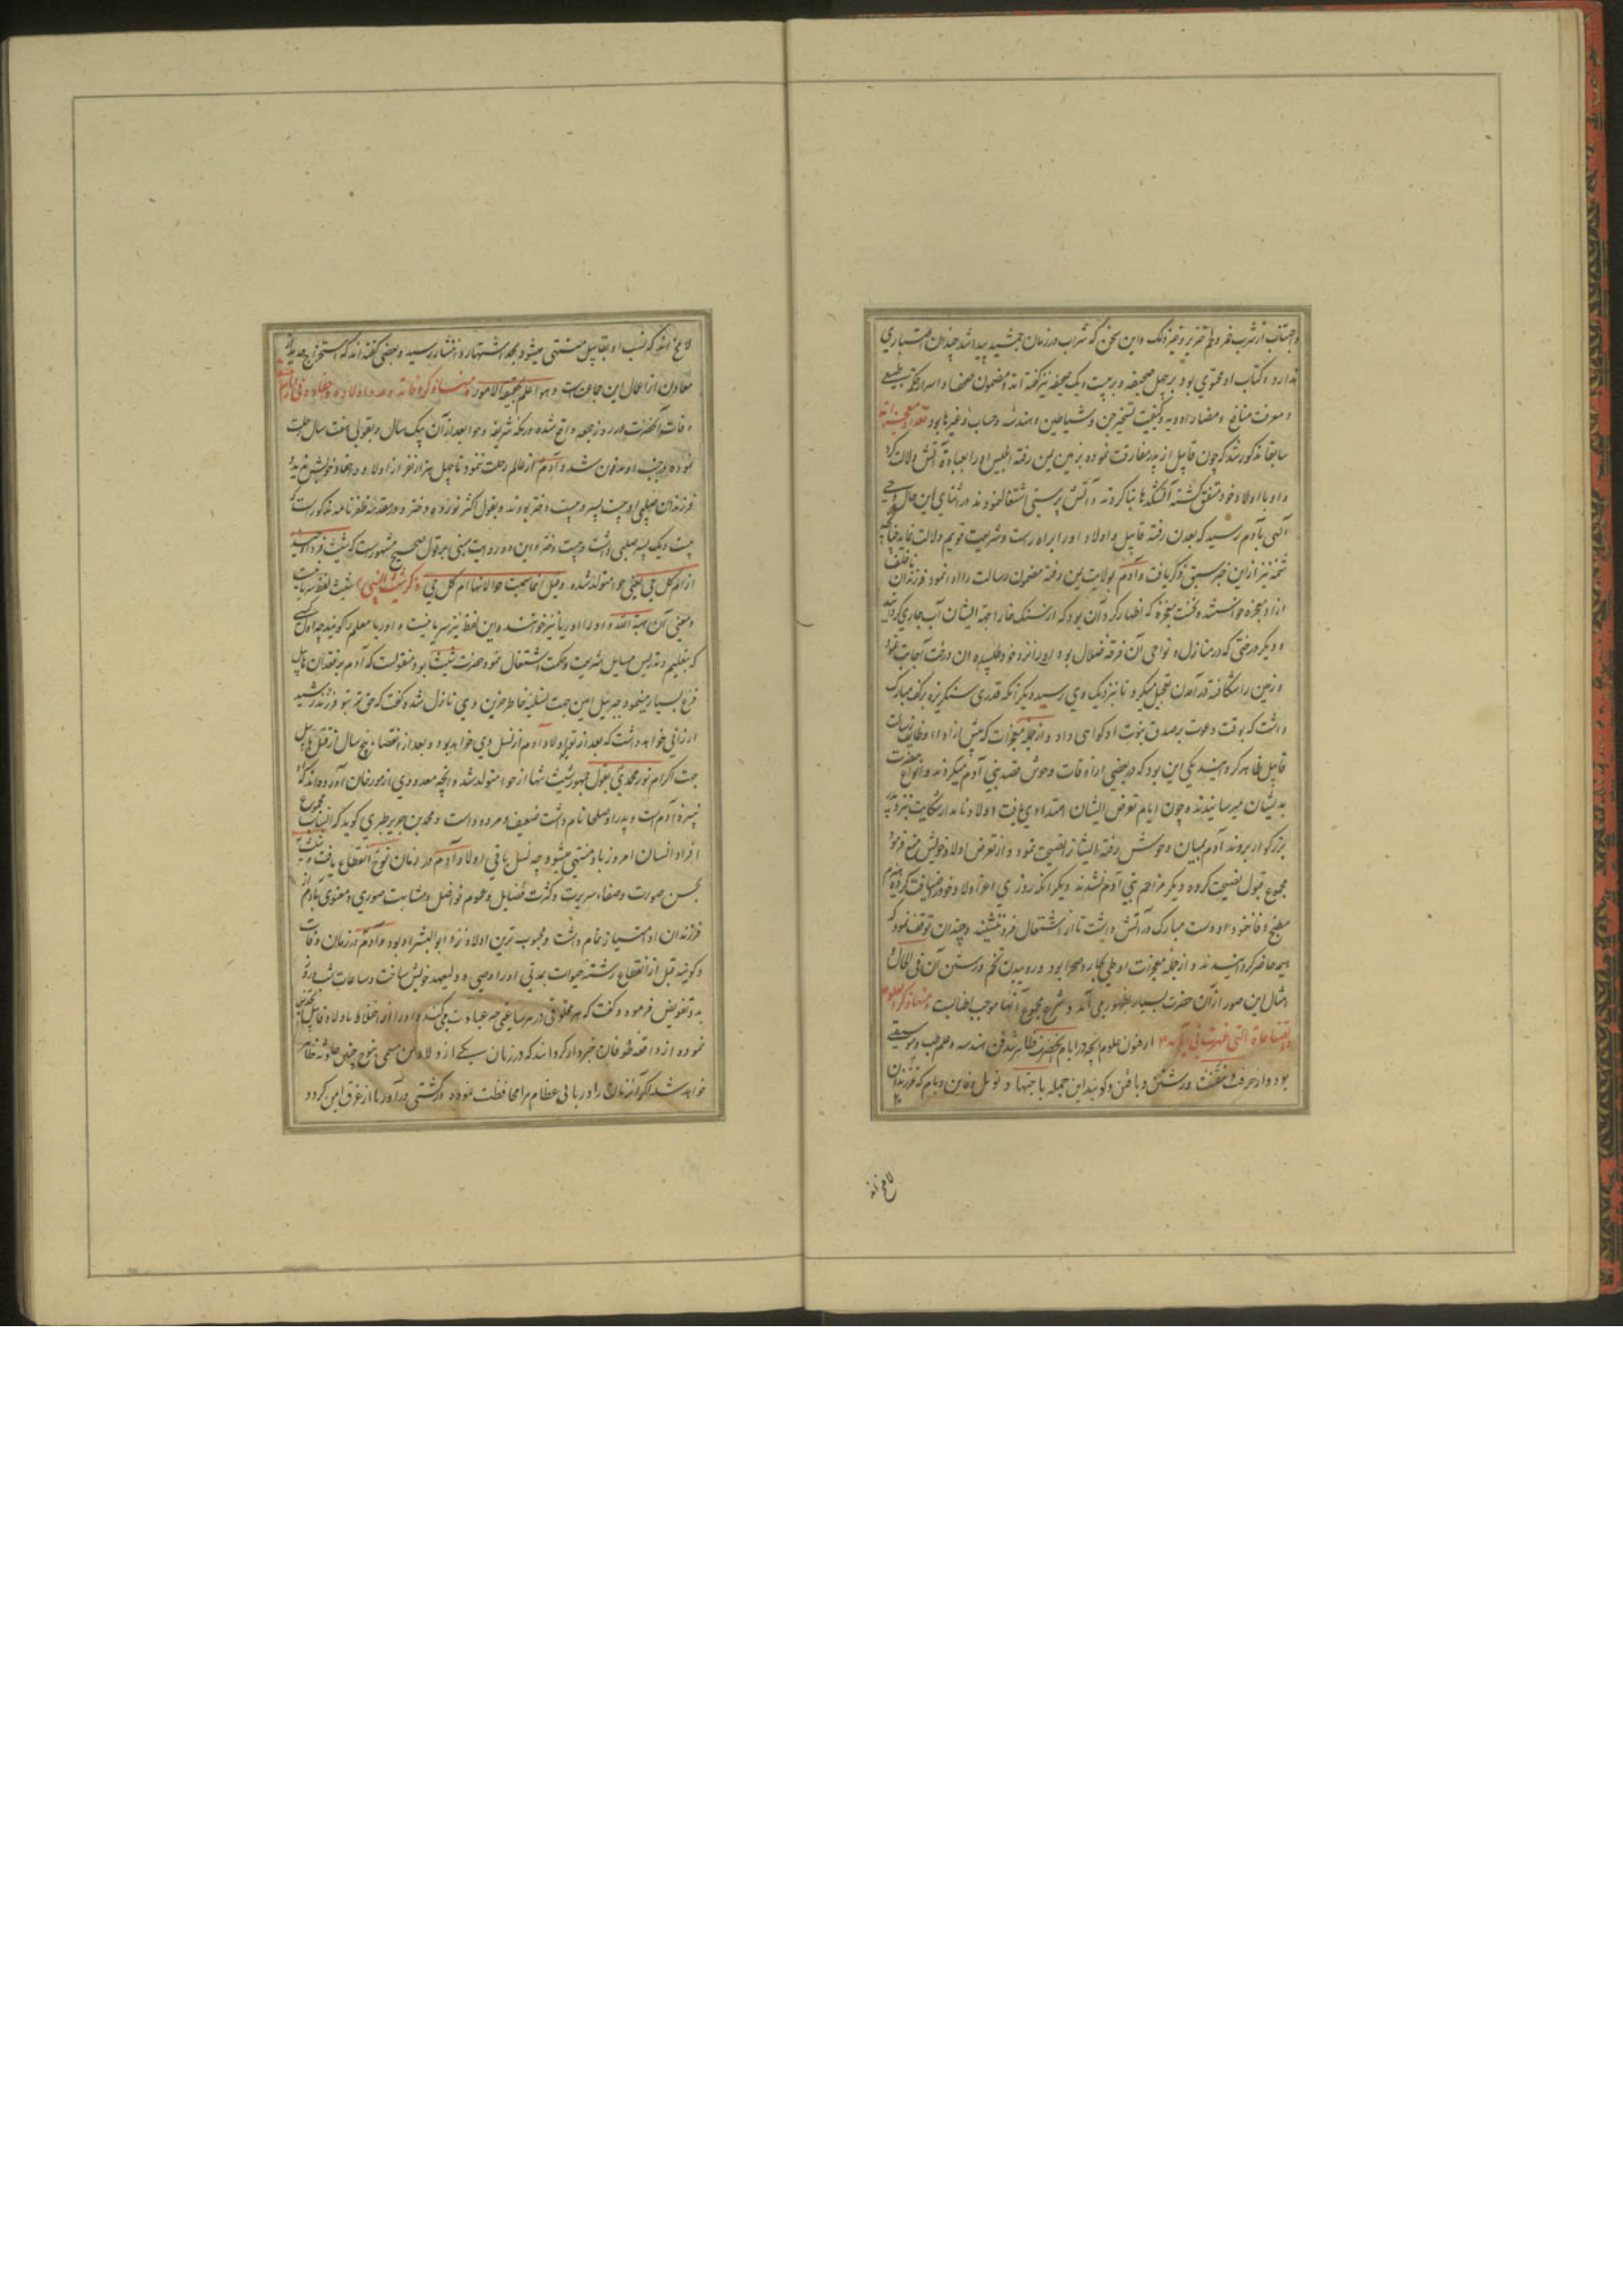 و اجتناب از شرب خمر و لحم خنزیر و غیر ذلک و این سخن که شراب در زمان جمشید پیدا شد چندان اعتباری
ندارد و کتاب او محتوی بود بر چهل صحیفه و بر بیست و یک صحیفه نیز گفته اند و مضمون صحف اسرار حکمت طبیعی
و معرفت منافع و مضار ادویه و کیفیت تسخیر جن و شیاطین و هندسه و حساب و غیرها بود
سابقا مذکور شد که چون قابیل از پدر مفارقت نموده بزمین یمن رفته ابلیس او را بعبادة آتش دلالت کرد
و او با اولاد خود متفق گشته آتشکدها بنا کردند و بآتش پرستی اشتغال نمودند در اثنای این حال وحی
الهی بآدم رسید که بعدن رفته قابیل و اولاد او را براه راست و شریعت قویم دلالت نماید چنانچه
شمه نیز از این خبر سبق ذکر یافت و آدم بولایت یمن رفته مضمون رسالت را ادا نمود فرزندان ناخلف
ازو معجزه خواستند و نخست معجزه که اظهار کرد آن بود که از سنک خارا جهة ایشان آب جاری گردانید
و دیگر درختی که در منازل و نواحی آن فرقه ضلال بود او را نزد خود طلبید و آن درخت اجابت نمود
و زمین را شکافته در آمدن تعجیل میکرد تا بنزدیک وی رسید و دیگر آنکه قدری سنکریزه بر کف مبارک
داشت که بوقت دعوت بر صدق نبوت او گواهی داد و از جمله معجزات که پیش از اداء وظایف رسالت
قابیل ظاهر گردانید یکی این بود که در بعضی از اوقات وحوش قصد بنی آدم میکردند و انواع مضرت
بدیشان میرسانیدند و چون ایام تعرض ایشان امتدادی یافت اولاد نامدار شکایت بنزد پدر
بزرگوار بردند آدم بمیان وحوش رفته ایشانرا نصیحت نمود و از تعرض اولاد خویش منع فرمود
مجموع قبول نصیحت کرده دیگر مزاحم بنی آدم نشدند دیگر آنکه روزی اعزه اولاد خود را ضیافت کرده
مطبخ و دست مبارک در آتش داشت تا از اشتعال فرو ننشیند و چندان توقف نمود که
همه حاضر گردانیدند و از جمله معجزات او طی بحار و صحرا بود و رویدن تخم و رستن آن فی الحال و
امثال این صور از آن حضرت بسیار بظهور می آمد و شرح مجموع آنها موجب اطنابست و منها ذکر العلوم
و الصناعة التی ظهرت فی از فنون علوم آنچه در ایام آنحضرت ظاهر شد فن هندسه و علم طب و موسیقی
بود و از حرفت و رشتن و بافتن و گویند این جمله
لاغ انند
لاغ انند که نسب او بقابیل منتهی میشود بحد اشتهار و انتشار رسید و بعضی گفته اند که استخراج حدید از
معادن از اعمال این جماعت است و هو اعلم بحقیقة الامور و منها ذکر وفاته و عدد اولاده
وفات آنحضرت در روز جمعه واقع شده در مکه شریفه و حوا بعد از آن بیک سال و بقولی هفت سال رحلت
نموده در جنب او مدفون شد و آدم از عالم رحلت ننمود تا چهل هزار نفر از اولاد و احفاد خویش ندید و
فرزندان صلبی او بیست پسر و بیست دختر بودند و بقول اکثر نوزده دختر و در مقدمه ظفرنامه مذکور است که
بیست و یک پسر صلبی داشت و بیست دختر و این دو روایت مبنی بر قول صحیح مشهور است که شیث
از ام کل حی یعنی حوا متولد شده و قیل انما سمیت حوا لانها ام کل حی ذکر شیث النبی شیث لفظ سریانیست
و معنی آن هبة الله و او را اوریا نیز خوانند و این لفظ نیز سریانیست و اوریا معلم را گویند چه اول کسی
که بتعلیم و تدریس مسایل شریعت و حکمت اشتغال نمود حضرت شیث بود منقولست که آدم بر فقدان هابیل
فزع بسیار مینمود و جبرئیل امین جهت تسلیه خاطر حزین وی نازل شده گفت که حق تعالی بتو فرزند رشید
ارزانی خواهد داشت که بعد از تو اولاد آدم از نسل وی خواهد بود و بعد از انقضاء پنج سال از قتل هابیل
جهت اکرام نور محمدی بقول جمهور شیث تنها از حوا متولد شد و آنچه معدودی از مورخان آورده اند که او
نبیره آدمست و پدر او صلحا نام داشت ضعیف و مردود است و محمد بن جریر طبری گوید که انساب مجموع
افراد انسان امروز باو منتهی میشود چه نسل باقی اولاد آدم در زمان نوح انقطاع یافت
بحسن صورت و صفاء سریرت و کثرت فضایل و عموم فواضل و مشابهت صوری و معنوی بآدم از
فرزندان او امتیاز تمام داشت و محبوب ترین اولاد نزد ابو البشر او بود و آدم در زمان وفات
و گویند قبل از انقطاع رشته حیات بمدتی او را وصی و ولیعهد خویش ساخت و ساعات شب و روز
بدو تفویض فرمود و گفت که هر مخلوقی در هر ساعتی چه عبادت می کنند و او را از اختلاط باولاد قابیل
نموده از واقعه طوفان خبردار گردانید که در زمان یکی از اولاد من مسمی بنوح چنین حادثه ظاهر
خواهد شد اگر آن زمان را دریابی عظام مرا محافظت نموده در کشتی درآور تا از غرق ایمن گردد